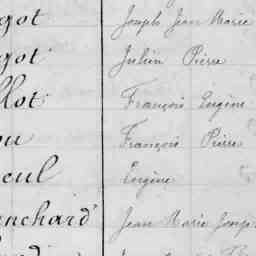 got Joseph Jean Marie
got Julien Pierre
llot François Eugène
ou François Pierre
eul Eugène
anchard Jean Marie Joseph